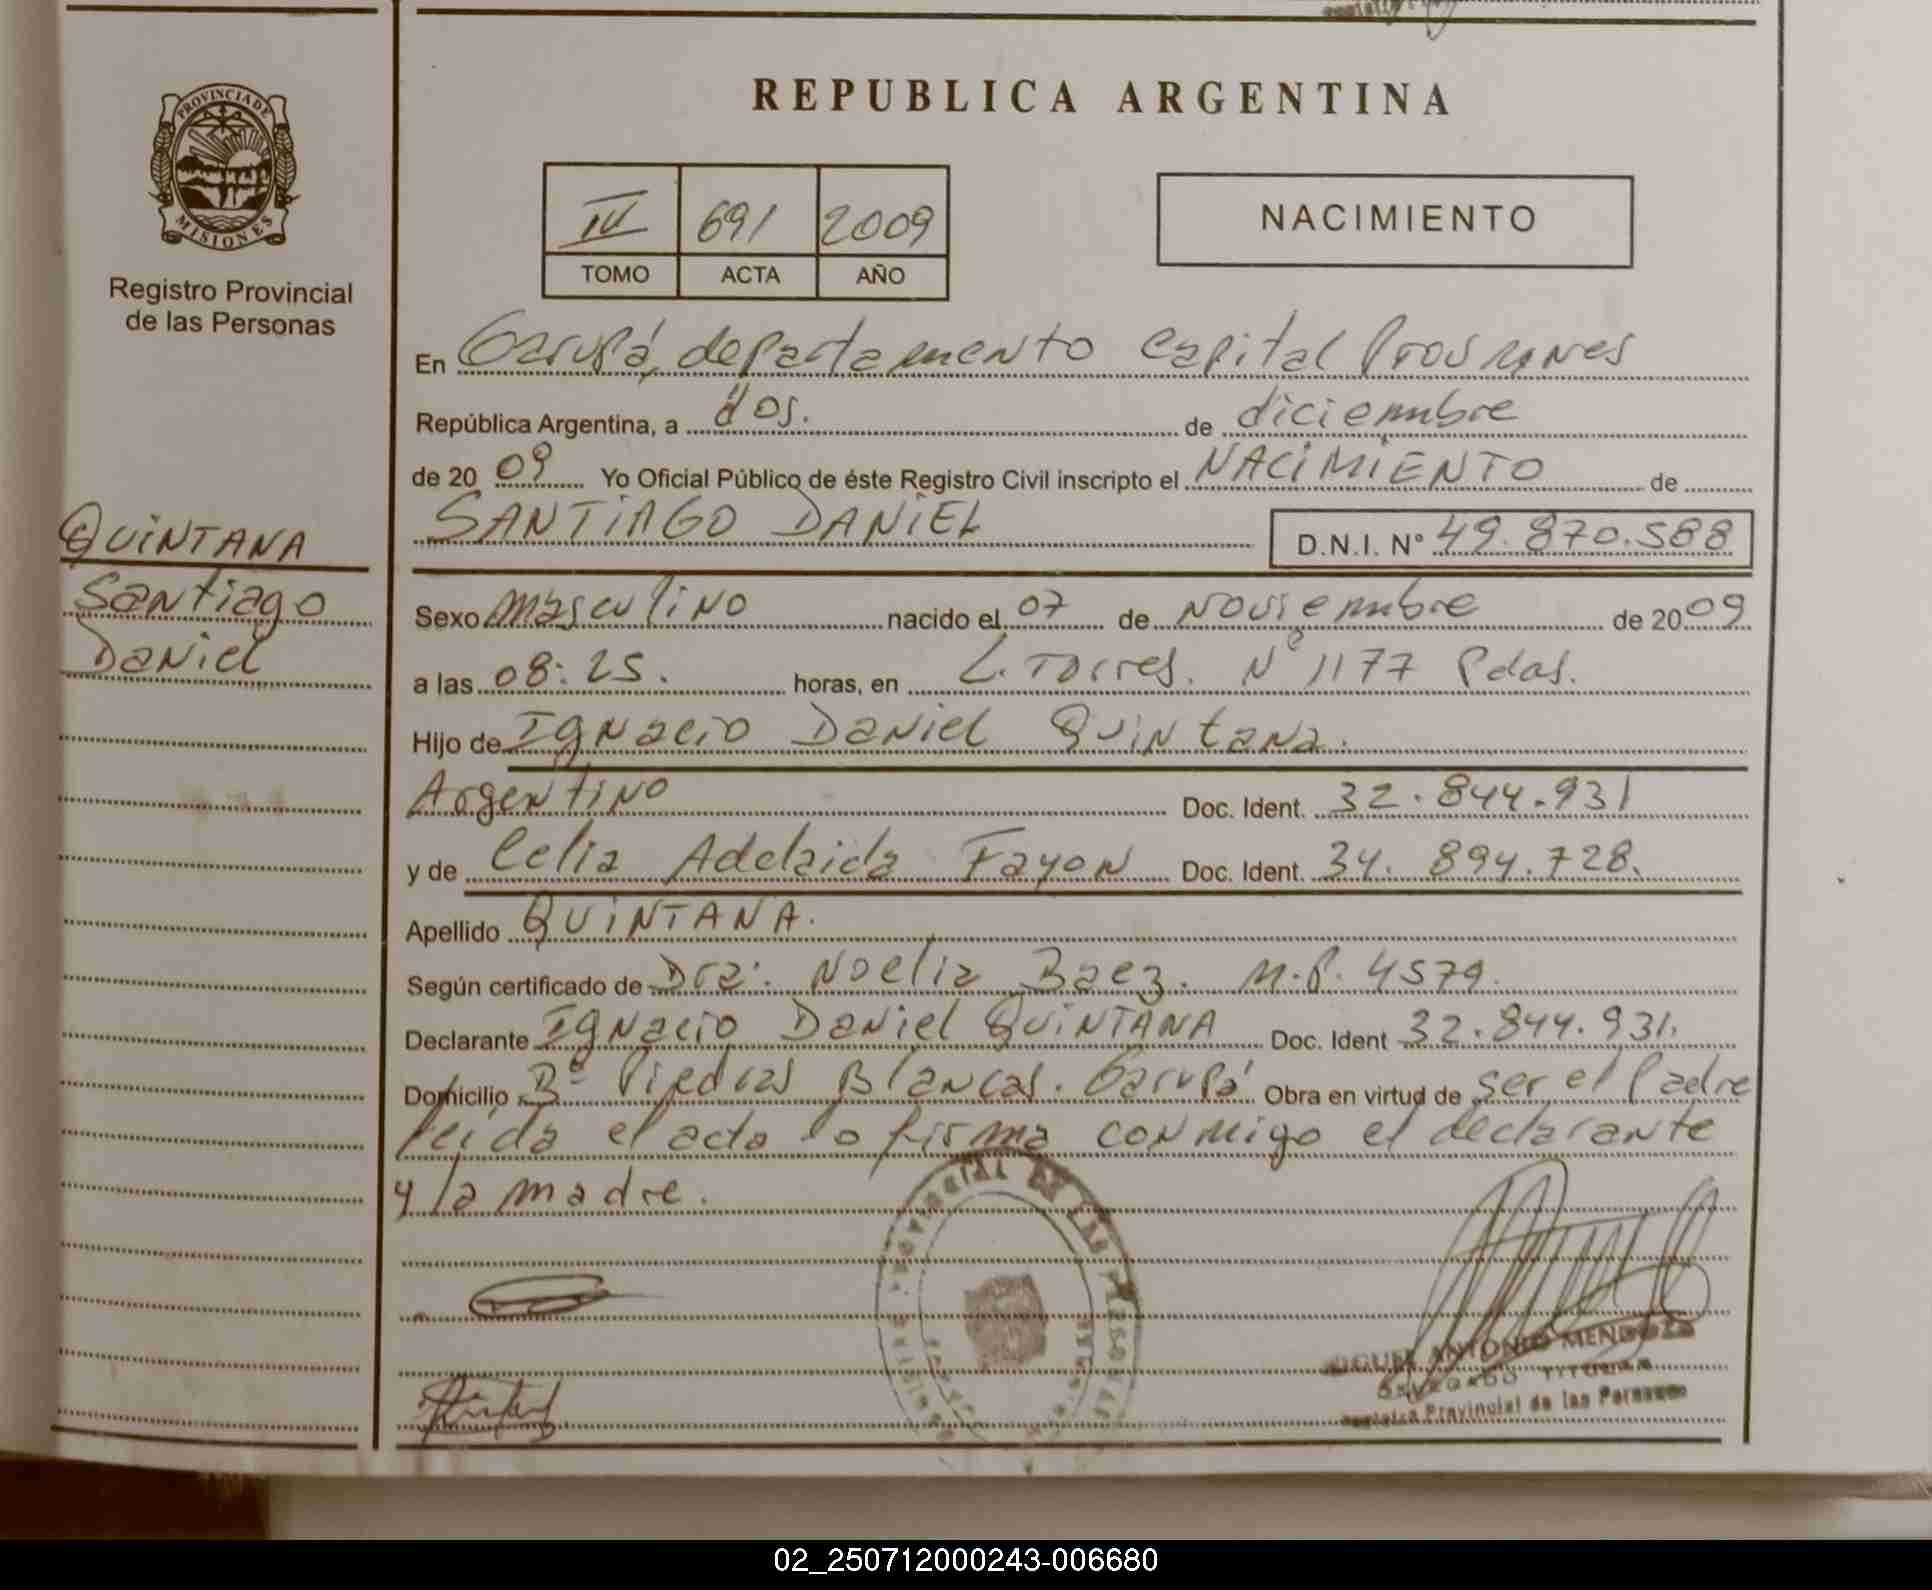 REPUBLICA ARGENTINA
PROVINCIA DE
MISIONES
Registro Provincial
de las Personas
IV 691 2009
TOMO ACTA AÑO
NACIMIENTO
En Garupá, departamento Capital
República Argentina, a dos. de diciembre
de 2009 Yo Oficial Público de éste Registro Civil inscripto el NACIMIENTO de
SANTIAGO DANIEL D.N.I. N° 49.870.588
QUINTANA
Santiago
Daniel
Sexo masculino nacido el 07 de Noviembre de 2009
a las 08:25. horas, en L. Torres. N° 1177 Pdas.
Hijo de Ignacio Daniel Quintana.
Argentino Doc. Ident. 32.844.931
y de Celia Adelaida Fayon Doc. Ident. 34.894.728.
Apellido QUINTANA.
Según certificado de Dra: Noelia Baez. M.P. 4579.
Declarante Ignacio Daniel QUINTANA Doc. Ident 32.844.931.
Domicilio B° Piedras Blancas. Garupá Obra en virtud de ser el Padre
leída el acta lo firma conmigo el declarante
y la madre.
ANTONIO MENDOZA
DELEGADO TITULAR
Registro Provincial de las Personas
02_250712000243-006680